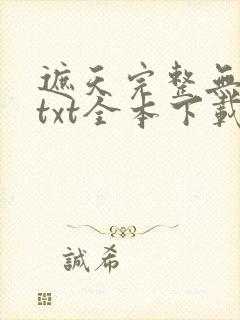 遮天完整無
txt全本下載
誠希